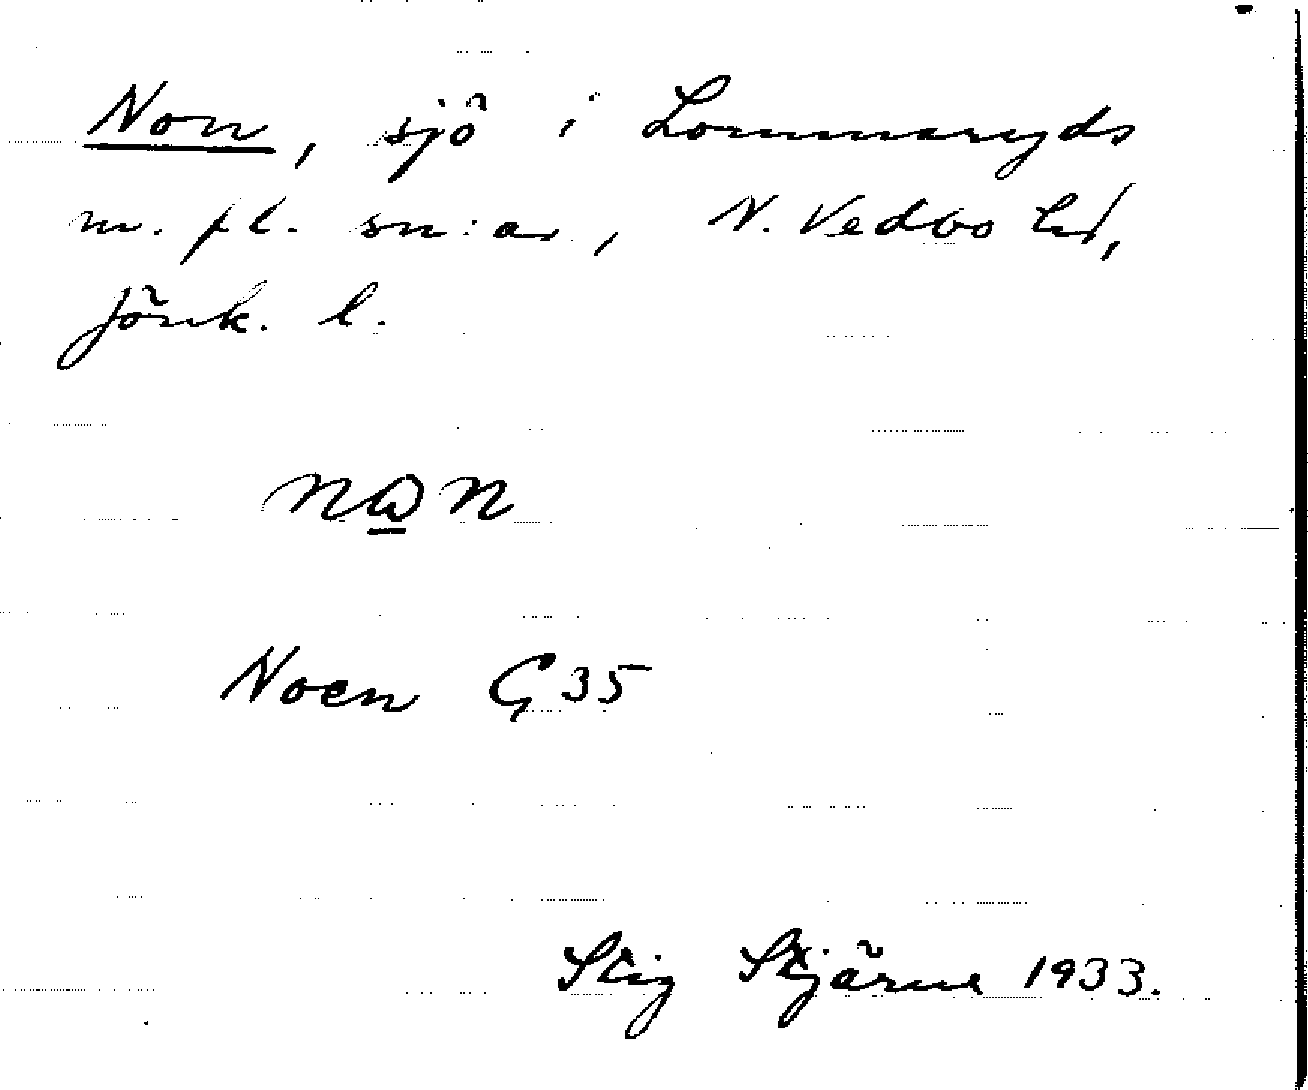 Non, sjö i Lommaryds
m. fl. sn:ar, N. Vedbo hd,
Jönk. l.
Noen G35
Stig Stjärne 1933.